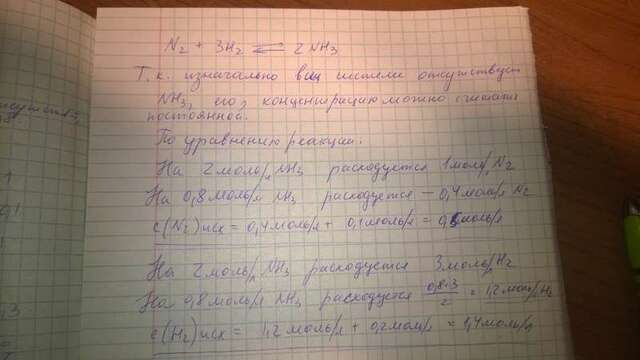 N2 + 3H2 ⇌ 2NH3
Т.к. изначально в системе отсутствует
NH3, его концентрацию можно считать
постоянной.
По уравнению реакции:
На 2 моль/л NH3 расходуется 1 моль/л N2
На 0,8 моль/л NH3 расходуется – 0,4 моль/л N2
c(N2)исх = 0,4 моль/л + 0,1 моль/л = 0,5 моль/л
На 2 моль/л NH3 расходуется 3 моль/л H2
На 0,8 моль/л NH3 расходуется 0,8·3/2 = 1,2 моль/л H2
c(H2)исх = 1,2 моль/л + 0,2 моль/л = 1,4 моль/л